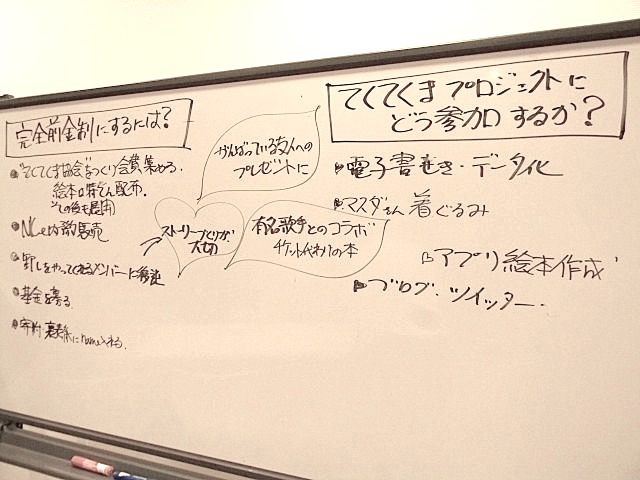 完全前金制にするには?
"てくてくま協会"をつくり会費集める。
絵本は特でん配布。
その後も
内
メンバーに
基金を募る
寄付 裏表紙にname入れる。
がんばっている友人への
プレゼントに
ストーリーづくりが
大切
有名歌手とのコラボ
チケット代わりの本
てくてくまプロジェクトに
どう参加するか?
電子書せき・データ化
マスダさん 着ぐるみ
アプリ絵本作成
ブログ・ツイッター・